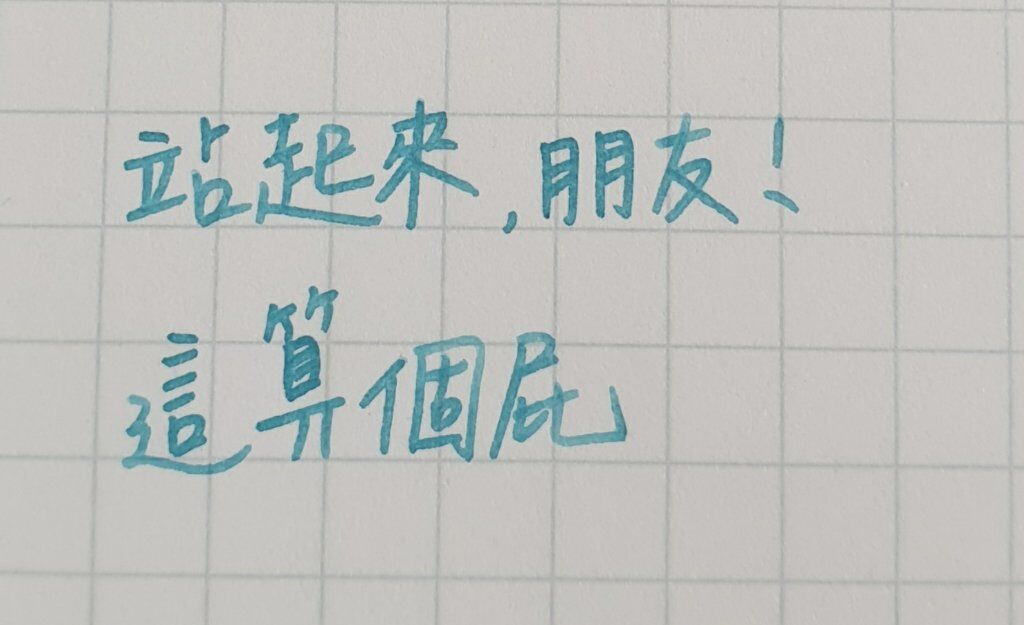 站起來,朋友!
這算個屁